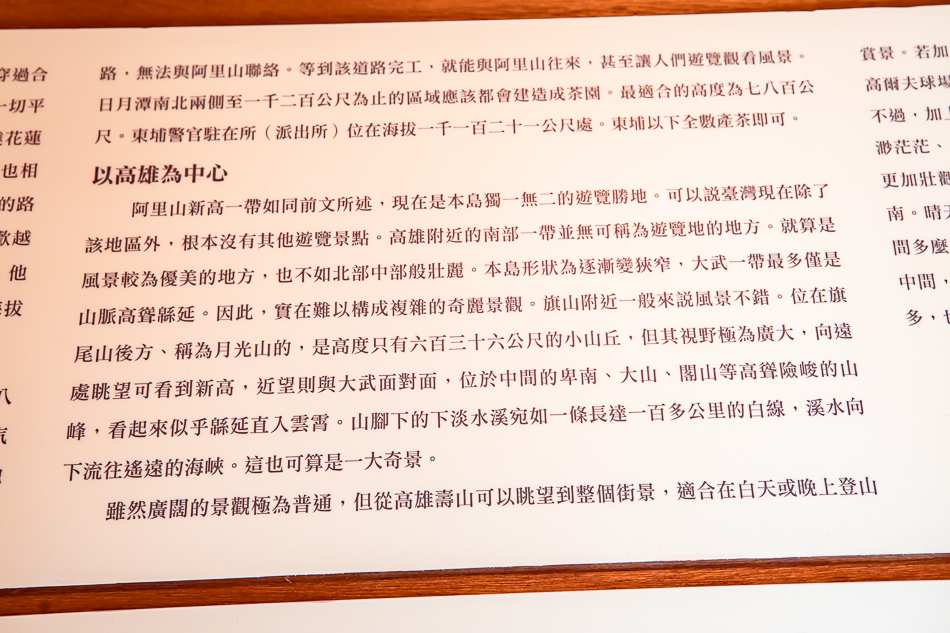 穿過合
一切平
花蓮
也相
的路
歡越
他
拔
八
路，無法與阿里山聯絡。等到該道路完工，就能與阿里山往來，甚至讓人們遊覽觀看風景。
日月潭南北兩側至一千二百公尺為止的區域應該都會建造成茶園。最適合的高度為七八百公
尺。東埔警官駐在所（派出所）位在海拔一千一百二十一公尺處。東埔以下全數產茶即可。
以高雄為中心
阿里山新高一帶如同前文所述，現在是本島獨一無二的遊覽勝地。可以說臺灣現在除了
該地區外，根本沒有其他遊覽景點。高雄附近的南部一帶並無可稱為遊覽地的地方。就算是
風景較為優美的地方，也不如北部中部般壯麗。本島形狀為逐漸變狹窄，大武一帶最多僅是
山脈高聳緜延。因此，實在難以構成複雜的奇麗景觀。旗山附近一般來說風景不錯。位在旗
尾山後方、稱為月光山的，是高度只有六百三十六公尺的小山丘，但其視野極為廣大，向遠
處眺望可看到新高，近望則與大武面對面，位於中間的卑南、大山、閣山等高聳險峻的山
峰，看起來似乎緜延直入雲霄。山腳下的下淡水溪宛如一條長達一百多公里的白線，溪水向
下流往遙遠的海峽。這也可算是一大奇景。
雖然廣闊的景觀極為普通，但從高雄壽山可以眺望到整個街景，適合在白天或晚上登山
賞景。若加
高爾夫球場
不過，加上
渺茫茫、
更加壯觀
南。晴天
間多麼
中間，
多，也